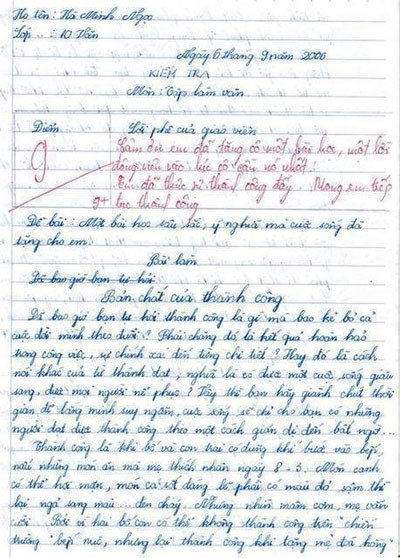 Họ tên : Hà Minh Ngọc
Lớp : 10 Văn
Ngày 6 tháng 9 năm 2006
KIỂM TRA
Môn : Tập làm văn
Điểm Lời phê của giáo viên
9 Cảm ơn em đã tặng cô một bài học, một lời
động viên vào lúc cô cần nó nhất!
Em đã thực sự thành công đấy. Mong em tiếp
9+ tục thành công
Đề bài : Một bài học sâu sắc, ý nghĩa mà cuộc sống đã
tặng cho em.
Bài làm
Đã bao giờ bạn tự hỏi
Bản chất của thành công
Đã bao giờ bạn tự hỏi thành công là gì mà bao kẻ bỏ cả
cuộc đời mình theo đuổi? Phải chăng đó là kết quả hoàn hảo
trong công việc, sự chính xác đến từng chi tiết? Hay đó là cách
nói khác của từ thành đạt, nghĩa là có được một cuộc sống giàu
sang, được mọi người nể phục? Vậy thì bạn hãy giành chút thời
gian để lắng mình suy ngẫm, cuộc sống sẽ chỉ cho bạn có những
người đạt được thành công theo một cách giản dị đến bất ngờ...
Thành công là khi bố và con trai có dũng khí bước vào bếp,
nấu những món ăn mà mẹ thích nhân ngày 8 - 3. Món canh
có thể hơi mặn, món cá sốt đáng lẽ phải có màu đỏ sậm thì
lại ngả sang màu... đen cháy. Nhưng nhìn mâm cơm, mẹ vẫn
cười. Bởi vì hai bố con có thể không thành công trên chiến
trường "bếp núc, nhưng lại thành công khi tặng mẹ đoá hồng"